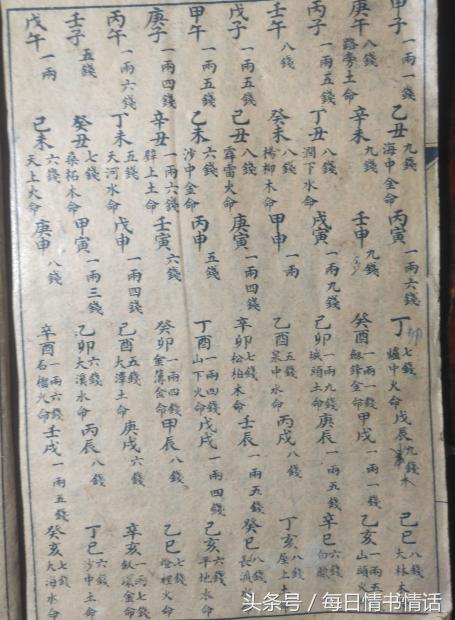 甲子 一兩一錢 乙丑 九錢 海中金命 丙寅 一兩六錢 丁卯 七錢 爐中火命 戊辰 九錢 木 己巳 八錢 大林木
庚午 八錢 路旁土命 辛未 九錢 壬申 九錢 癸酉 一兩一錢 釼鋒金命 甲戌 一兩一錢 乙亥 一兩五 山頭火
丙子 一兩五錢 丁丑 八錢 澗下水命 戊寅 一兩九錢 己卯 一兩九錢 城頭土命 庚辰 一兩五錢 辛巳 六錢 白
壬午 八錢 癸未 八錢 楊柳木命 甲申 一兩 乙酉 五錢 泉中水命 丙戌 八錢 丁亥 八錢 屋上
戊子 一兩五錢 己丑 八錢 霹靂火命 庚寅 一兩四錢 辛卯 七錢 松柏木命 壬辰 一兩五錢 癸巳 八錢 長流
甲午 一兩五錢 乙未 六錢 沙中金命 丙申 五錢 丁酉 一兩四錢 山下火命 戊戌 一兩四錢 己亥 六錢 平地水命
庚子 一兩四錢 辛丑 一兩六錢 壁上土命 壬寅 六錢 癸卯 一兩四錢 金簿金命 甲辰 八錢 乙巳 七錢 燈裡火命
丙午 一兩六錢 丁未 五錢 天河水命 戊申 一兩四錢 己酉 一兩四錢 大澤土命 庚戌 六錢 辛亥 一兩七錢 釵環金命
壬子 五錢 癸丑 七錢 桑柘木命 甲寅 一兩三錢 乙卯 六錢 大溪水命 丙辰 八錢 丁巳 六錢 沙中土命
戊午 一兩 己未 六錢 天上火命 庚申 八錢 辛酉 一兩六錢 石榴火命 壬戌 一兩五錢 癸亥 七錢 大海水命
头条号 / 每日情书情话